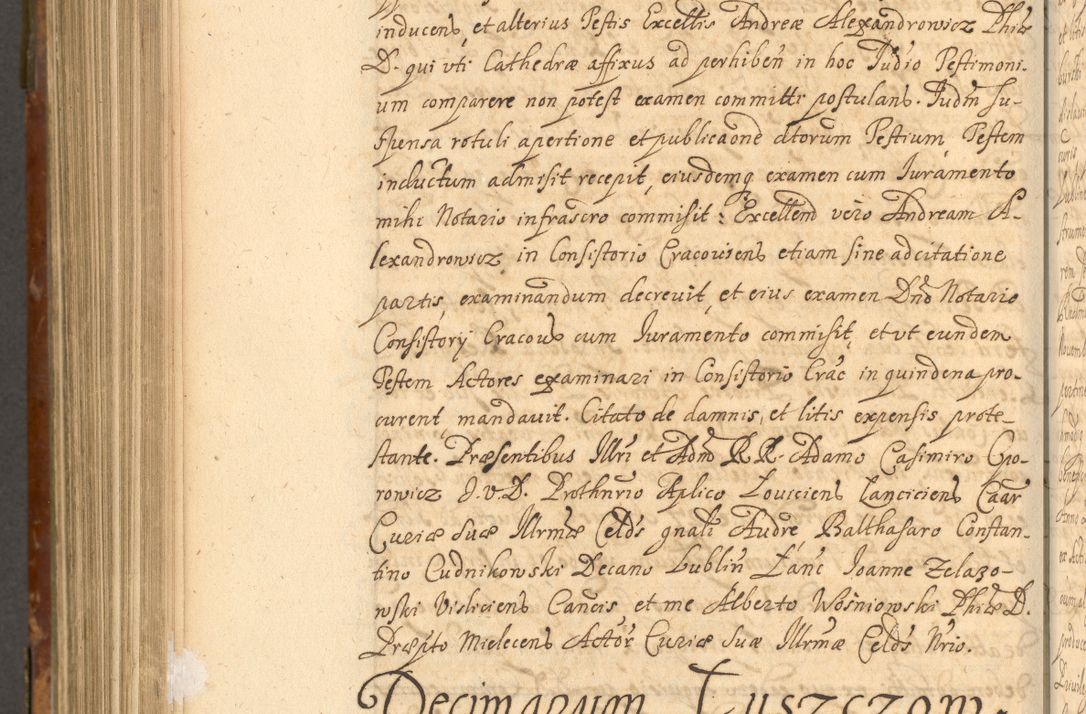 inducens, et alterius Testis Excellis Andreæ Alexandrowicz Philæ
D. qui vti Cathedræ affixus ad perhibeñ in hoc Iudio Testimoni-
um comparere non potest examen committi postulans. Iudm su-
spensa rotuli apertione et publicaone dtorum Testium, Testem
inductum admisit recepit, eiusdemq examen cum Iuramento
mihi Notario infrascro commisit: Excellend vero Andream A-
lexandrowicz, in Consistorio Cracouiens etiam sine adcitatione
partis, examinandum decreuit, et eius examen Dnd Notario
Consistorij Cracous cum Iuramento commisit, et vt eundem
Testem Actores examinari in Consistorio Crac in quindena pro-
curent, mandauit. Citato de damnis, et litis expensis prote-
stante. Præsentibus Illri et Adm R.R. Adamo Casimiro Opo-
rowicz I.V.D. Prothnrio Aplico Louiciens Lanciciens Caar
Curiæ Suæ Illrmæ Celds gnali Audre, Balthasaro Constan-
tino Cudnikowski Decano Lubliñ Lanc Ioanne Zelazo-
wski Visliciens Cancis et me Alberto Wosniowski Philæ D.
Præpto Mielecens Actor Curiæ Suæ Illrmæ Celds Nrio.
Decimarum Luszczow.